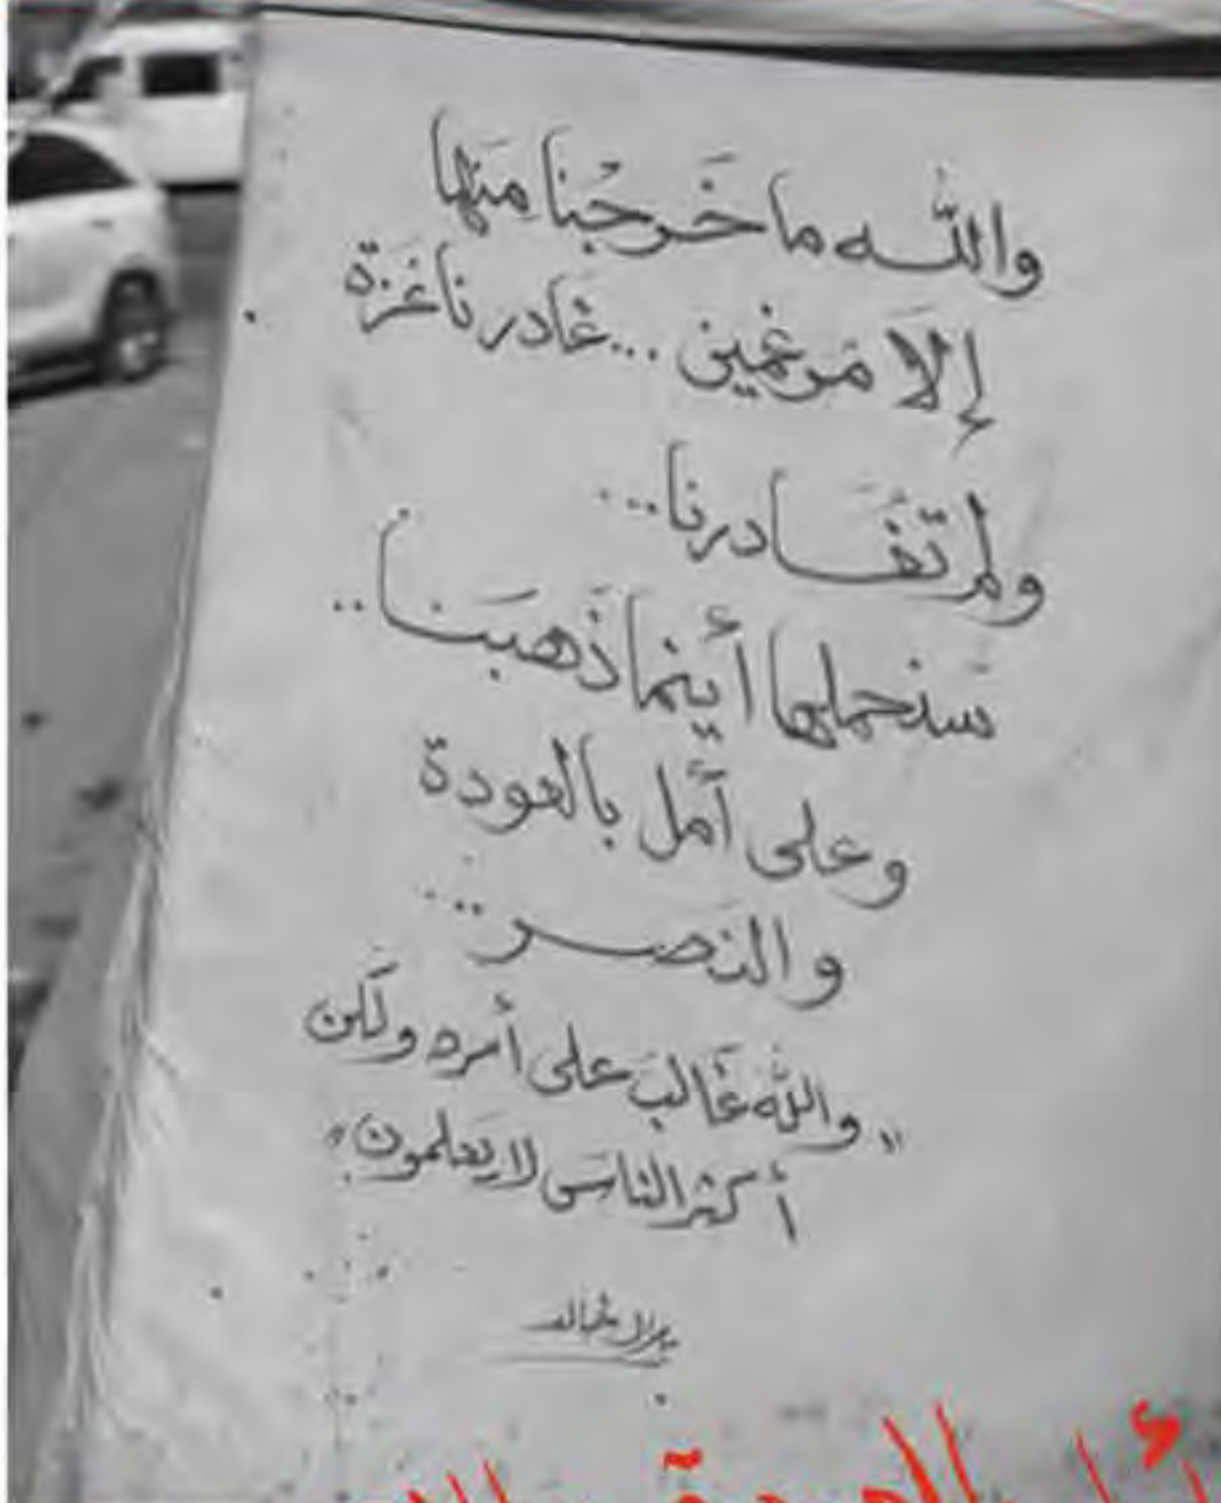 والله ما خَرجْنا منها
إلا مرغمين ... غادرنا غزة
ولم تُغادرنا ...
سنحملها أينما ذَهبنا ..
وعلى أمل بالعودة
والنصر ...
"والله غَالب على أمره ولكن
أكثر الناس لا يعلمون"
بلال خالد